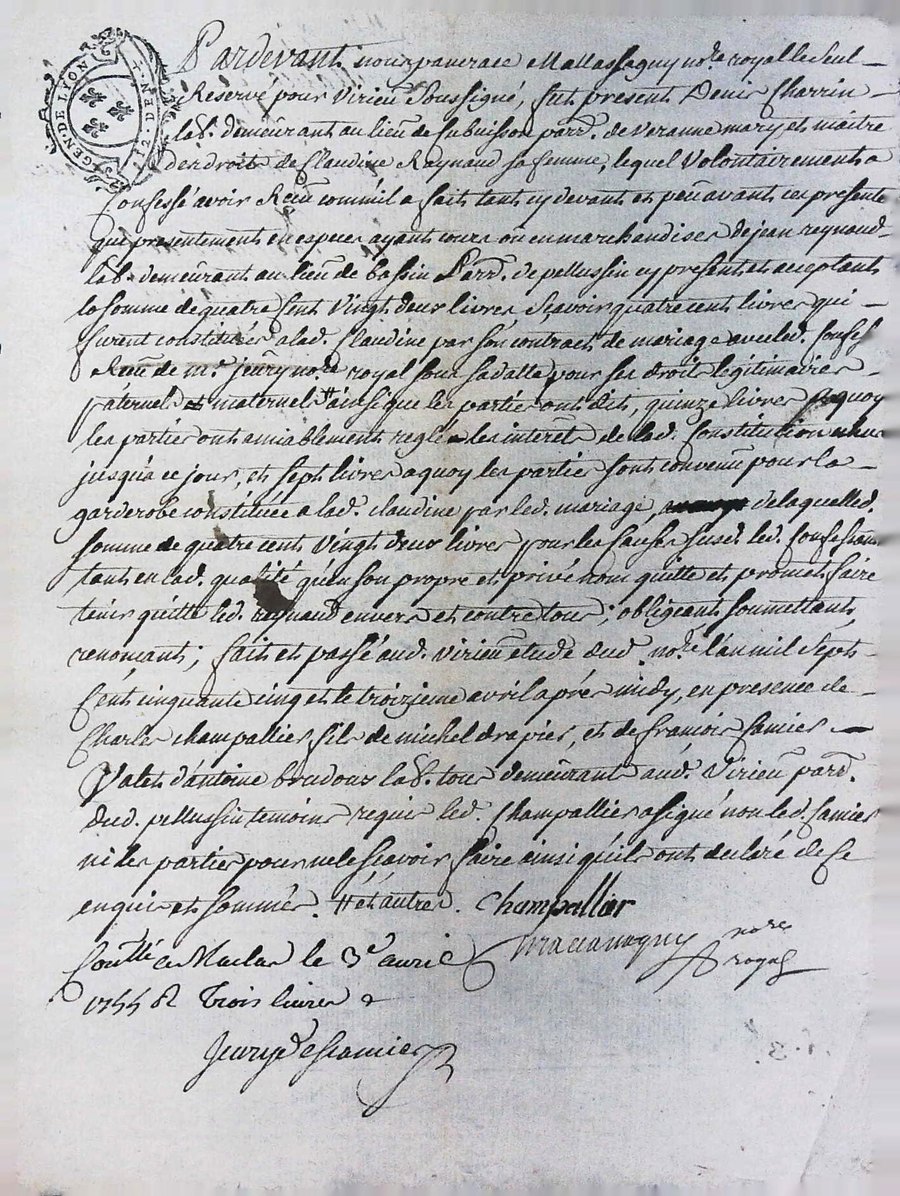 GEN. DE LYON
DEN. CI.
Pardevant nous pancrace Mallassagny no.re royal le seul
Reservé pour Virieu Soussigné, fut present Denis Charrin
lab. demeurant au lieu de Subuisson parr. de veranne mary et maitre
des droits de Claudine Raynaud sa femme, lequel Volontairement a
Confessé avoir Receu comm'il a fait tant cy devant et peu avant ces presente
que presentement en especes ayant cours ou en marchandises de jean reynaud
lab. demeurant au lieu de bassin Parr. de pellussin cy present et acceptant
la somme de quatre Cent Vingt deux livres Scavoir quatre cent livres qui
furent constituées a lad. Claudine par son contract de mariage avec led. Confes.
Receu de m.e jeury no.re royal sous sa datte pour ses droits légitimaires
paternel et maternel # ainsi que les partie ont dit, quinze livres a quoy
les partie ont amiablement reglé les interets de lad. Constitution
jusqu'a ce jour, et sept livres a quoy les partie sont convenu pour la
garderobe constituée a lad. claudine par led. mariage, de laquelle d.
somme de quatre cent Vingt deux livres pour les causes susd. led. Confessant
tant en lad. qualité qu'en son propre et privé nom quitte et promet faire
tenir quitte led. reynaud envers et contre tous; obligeant, soumettant,
renonçant; fait et passé aud. Virieu etude dud. no.re l'an mil Sept
Cent cinquante cinq et le troizieme avril après midy, en presence de
Charles champallier fils de michel drapier, et de francois Camier
Valet d'antoine boudoux lab. tous demeurant aud. Virieu parr.
dud. pellussin temoins requis led. Champallier a signé non led. Camier
ni les partie pour ne le scavoir faire ainsi qu'ils ont declaré de ce
enquis et sommés. # et autres. Champallier
no.re
royal
Contlé a Maclas le 3e avril
1755 R trois livres